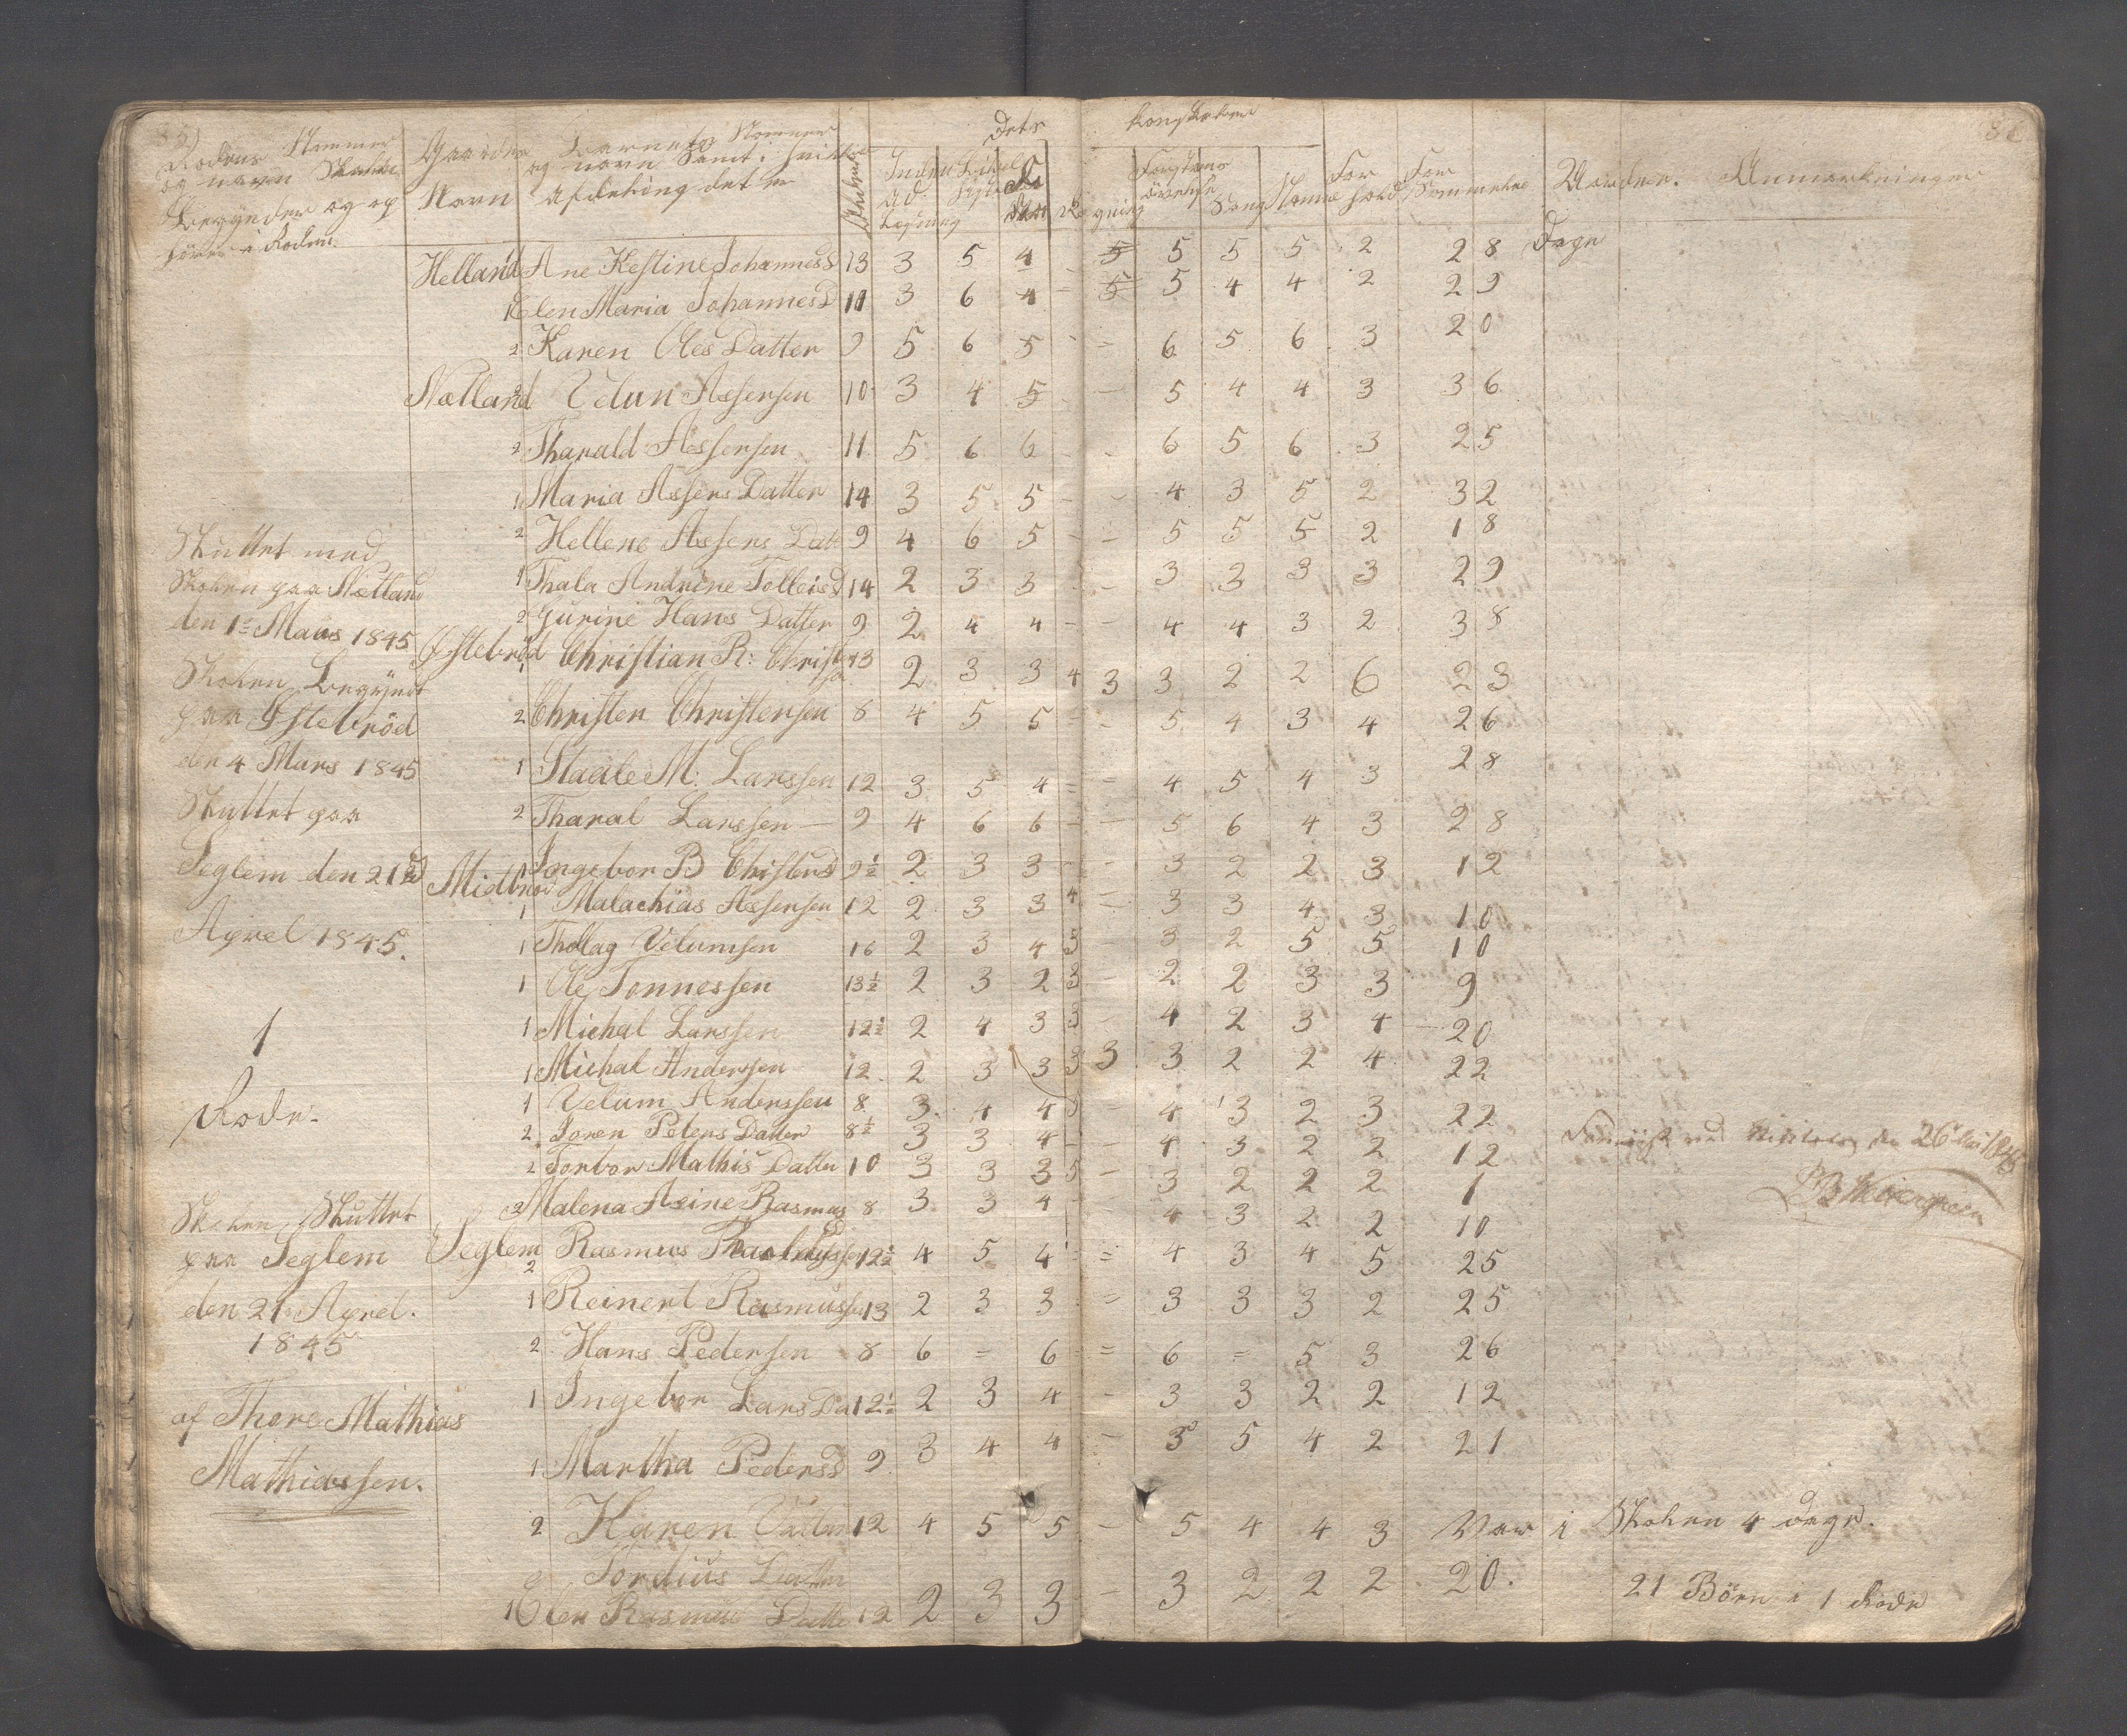 Rodens Nummer
og navn Skolen
Begynder og op
hører i Roden.
Gaardens
Navn
Barnets Nommer
og navn Samt i hvilken
afdeling det er
Dets
Kongskaber
Forstands
øvelse
Sang
For
hold
For
sømmelse
Anmærkninger
Dage
Helland Ane Kestine Johannesd 13 3 5 4 - 5 5 5 5 2 28
1 Elen Maria Johannesd 11 3 6 4 = 5 5 4 4 2 29
2 Karen Oles Datter 9 5 6 5 - = 6 5 6 3 20
Nætland 2 Velun Assersen 10 3 4 5 - - 5 4 4 3 36
2 Tharald Assersen 11 5 6 6 - - 6 5 6 3 25
1 Maria Assers Datter 14 3 5 5 - - 4 3 5 2 32
2 Hellene Assers Dat 9 4 6 5 - = 5 5 5 2 18
1 Thala Andrine Tolleisd 14 2 3 3 - - 3 3 3 3 29
2 Gurine Hans Datter 9 2 4 4 - - 4 4 3 2 38
Østebrød 1 Christian R: Christ 13 2 3 3 4 3 3 2 2 6 23
2 Christen Christensen 8 4 5 5 = - 5 4 3 4 26
1 Staale M: Larssen 12 3 5 4 = = 4 5 4 3 28
2 Tharal Larssen 9 4 6 6 - - 5 6 4 3 28
Midbrød 1 Ingebor B Christensd 9½ 2 3 3 - - 3 2 2 3 12
1 Malachias Assersen 12 2 3 3 4 = 3 3 4 3 10
1 Thollag Velumsen 16 2 3 4 5 - 3 2 5 5 10
1 Ole Tonnessen 13½ 2 3 2 3 - 2 2 3 3 9
1 Michal Larssen 12½ 2 4 3 3 - 4 2 3 4 20
1 Michal Anderssen 12 2 3 3 3 3 3 2 2 4 22
1 Velum Anderssen 8 3 4 4 3 - 4 3 2 3 22
2 Soren Peters Datter 8½ 3 3 4 - - 4 3 2 2 12
2 Torbor Mathis Datter 10 3 3 3 5 - 3 2 2 2 1
2 Malena Asine Rasmus 8 3 3 4 - - 4 3 2 2 10
Seglem 2 Rasmus 12½ 4 5 4 = = 4 3 4 5 25
1 Reinert Rasmussen 13 2 3 3 = 3 3 3 2 25
2 Hans Pedersen 8 6 = 6 = = 6 = 5 3 26
1 Ingebor Lars Da 12½ 2 3 4 - 3 3 2 2 12
1 Martha Pedersd 9 3 4 4 - 3 5 4 2 21
2 Karen 12 4 5 5 - 5 4 4 3 Var i Skolen 4 dage.
Tordius Datter
1 Elen Rasmus Datter 12 2 3 3 - 3 2 2 2 20. 21 Børn i 1 Rode
Sluttet med
Skolen paa Nætland
den 1ste Mars 1845
Skolen Begyndt
paa Østebrød
den 4 Mars 1845
Sluttet paa
Seglem den 21de
Aprel 1845.
1
Rode.
Skolen Sluttet
paa Seglem
den 21 Aprel.
1845
af Thore Mathias
Mathiassen.